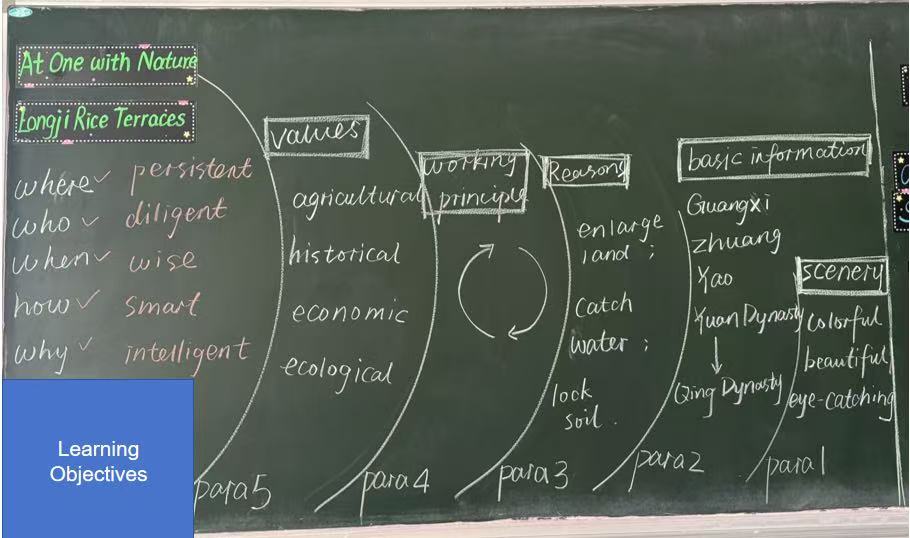 At One with Nature
Longji Rice Terraces
where✓ persistent
who✓ diligent
when✓ wise
how✓ smart
why✓ intelligent
Learning
Objectives
values
agricultural
historical
economic
ecological
para5
working
principle
para4
Reasons
enlarge
land ;
Catch
water ;
lock
soil .
para3
basic information
Guangxi
Zhuang
Yao
Yuan Dynasty
Qing Dynasty
para2
scenery
colorful
beautiful
eye-catching
para1